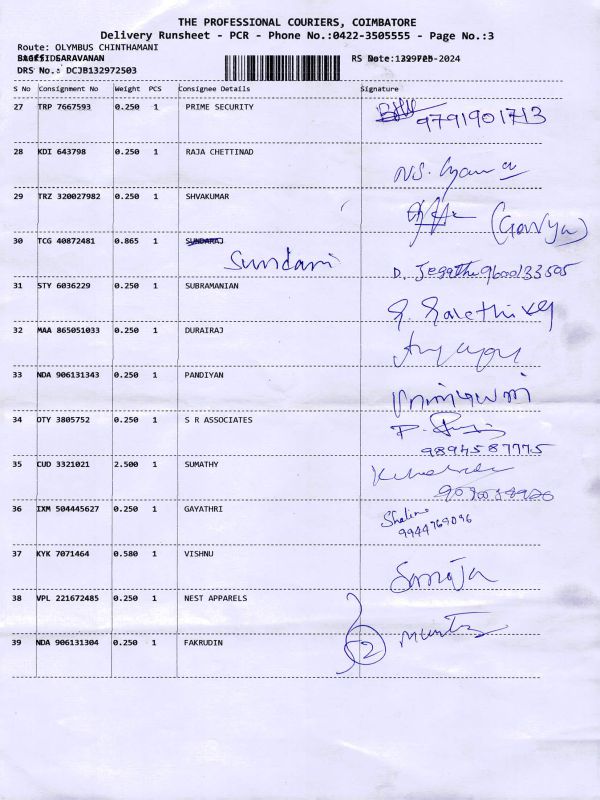 THE PROFESSIONAL COURIERS, COIMBATORE
Delivery Runsheet - PCR - Phone No.:0422-3505555 - Page No.:3
Route: OLYMBUS CHINTHAMANI
SARAVANAN
RS
DRS No.: DCJB132972503
S No Consignment No Weight PCS Consignee Details Signature
27 TRP 7667593 0.250 1 PRIME SECURITY
9791901713
28 KDI 643798 0.250 1 RAJA CHETTINAD
29 TRZ 320027982 0.250 1 SHVAKUMAR
(Gowya)
30 TCG 40872481 0.865 1 SUNDARAJ
Sundari
D. Jegatha 9600133505
31 STY 6036229 0.250 1 SUBRAMANIAN
32 MAA 865051033 0.250 1 DURAIRAJ
33 NDA 906131343 0.250 1 PANDIYAN
34 OTY 3805752 0.250 1 S R ASSOCIATES
9894587775
35 CUD 3321021 2.500 1 SUMATHY
36 IXM 504445627 0.250 1 GAYATHRI
9944769096
37 KYK 7071464 0.580 1 VISHNU
Saroja
38 VPL 221672485 0.250 1 NEST APPARELS
39 NDA 906131304 0.250 1 FAKRUDIN
52